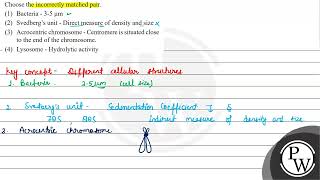 Choose the incorrectly matched pair.
(1) Bacteria - 3-5 μm
(2) Svedberg's unit - Direct measure of density and size x
(3) Acrocentric chromosome - Centromere is situated close
to the end of the chromosome.
(4) Lysosome - Hydrolytic activity
Key concept - Different cellular structures
1. Bacteria 2-5 μm (cell size)
2. Svedberg's unit - Sedimentation Coefficient S
70S, 80S Indirect measure of density and size
3. Acrocentric chromosome
PW